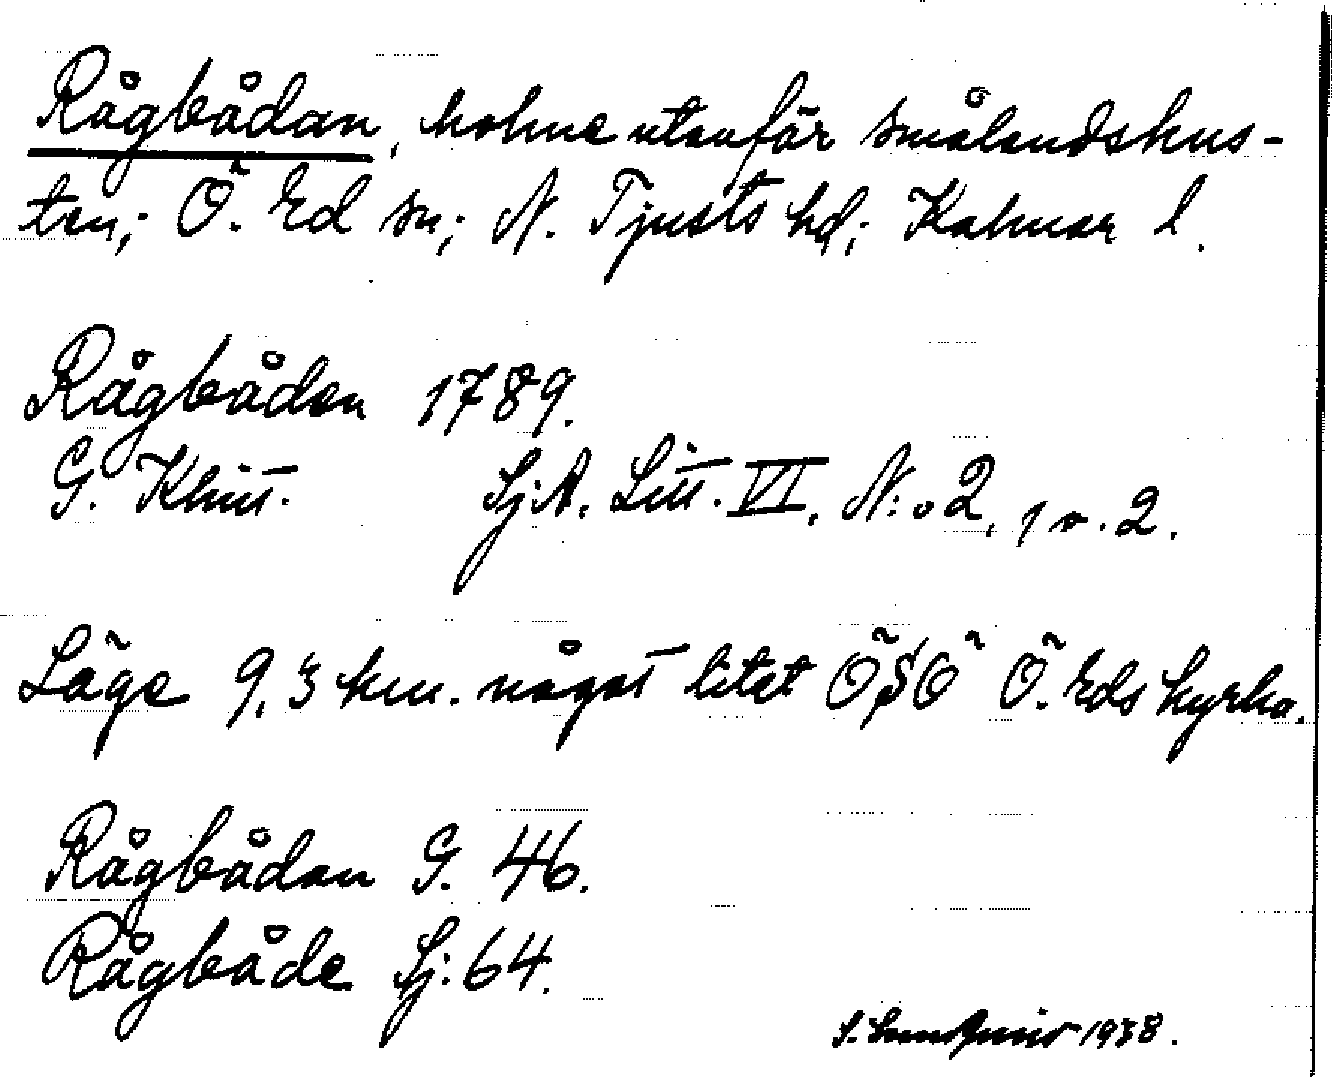 Rågbådan, holme utanför smålandskus-
ten; Ö. Ed sn; N. Tjusts hd; Kalmar l.
Rågbåden 1789.
G. Klint. Sj.A. Litt. VI, N:o 2, 1 o. 2.
Läge 9,3 km. något litet ÖSÖ Ö. Eds kyrka.
Rågbådan G. 46.
Rågbåde Sj: 64.
S. 1938.